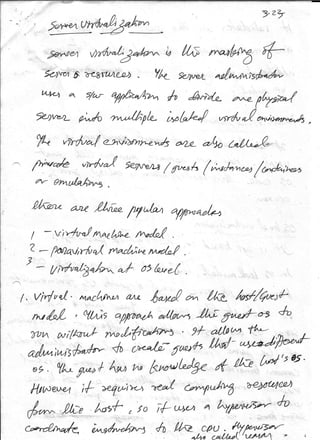 3-23
Server Virtualization
Server virtualization is the masking of
server's resources. The server administrator
uses a s/w application to divide one physical
server into multiple isolated virtual environments.
The virtual environments are also called
private virtual servers / guests / instances / containers
or emulations.
there are three popular approaches
1 - virtual machine model.
2 - paravirtual machine model.
3 - virtualization at OS level.
1. Virtual machines are based on the host/Guest
model. This approach allows the guest OS to
run without modifications. It allows the
administrator to create guests that use different
OS. The guest has no knowledge of the host's OS.
However it requires real computing resources
from the host, so it uses a hypervisor to
coordinate instructions to the CPU. Hypervisor
also called